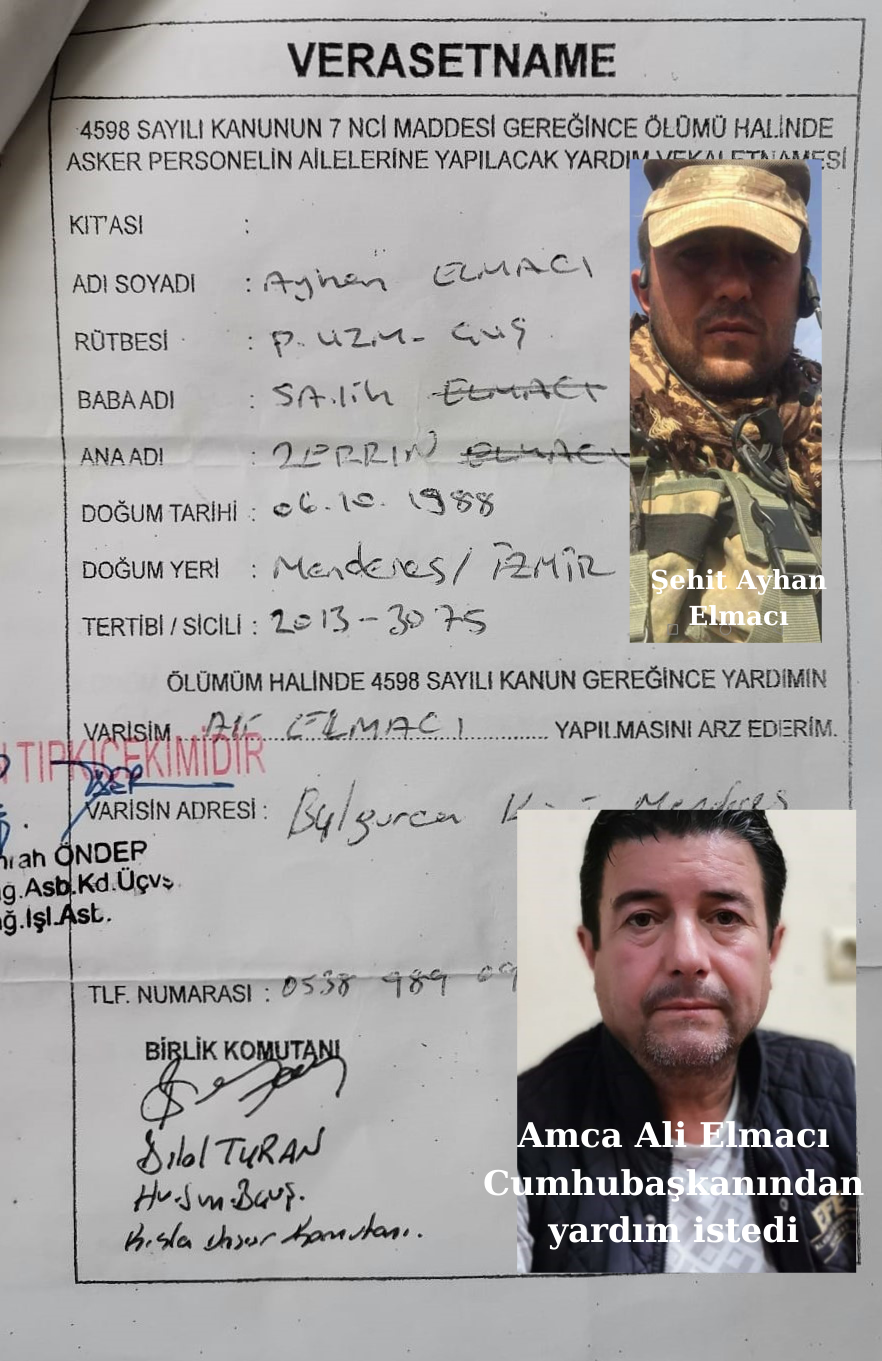 VERASETNAME
4598 SAYILI KANUNUN 7 NCİ MADDESİ GEREĞİNCE ÖLÜMÜ HALİNDE
ASKER PERSONELİN AİLELERİNE YAPILACAK YARDIM VEKALETNAMESİ
KIT'ASI :
ADI SOYADI : Ayhan ELMACI
RÜTBESİ : P. UZM. ÇVŞ
BABA ADI : SALİH ELMACI
ANA ADI : ZERRİN ELMACI
DOĞUM TARİHİ : 06.10.1988
DOĞUM YERİ : Menderes / İZMİR
TERTİBİ / SİCİLİ : 2013-3075
Şehit Ayhan
Elmacı
ÖLÜMÜM HALİNDE 4598 SAYILI KANUN GEREĞİNCE YARDIMIN
VARİSİM ELMACI YAPILMASINI ARZ EDERİM.
TIPKIÇEKİMİDİR
VARİSİN ADRESİ : Menderes
ÖNDER
Asb.Kd.Üçvş
İşl.Ast.
TLF. NUMARASI : 0538 989 09
BİRLİK KOMUTANI
Bilal TURAN
Amca Ali Elmacı
Cumhubaşkanından
yardım istedi